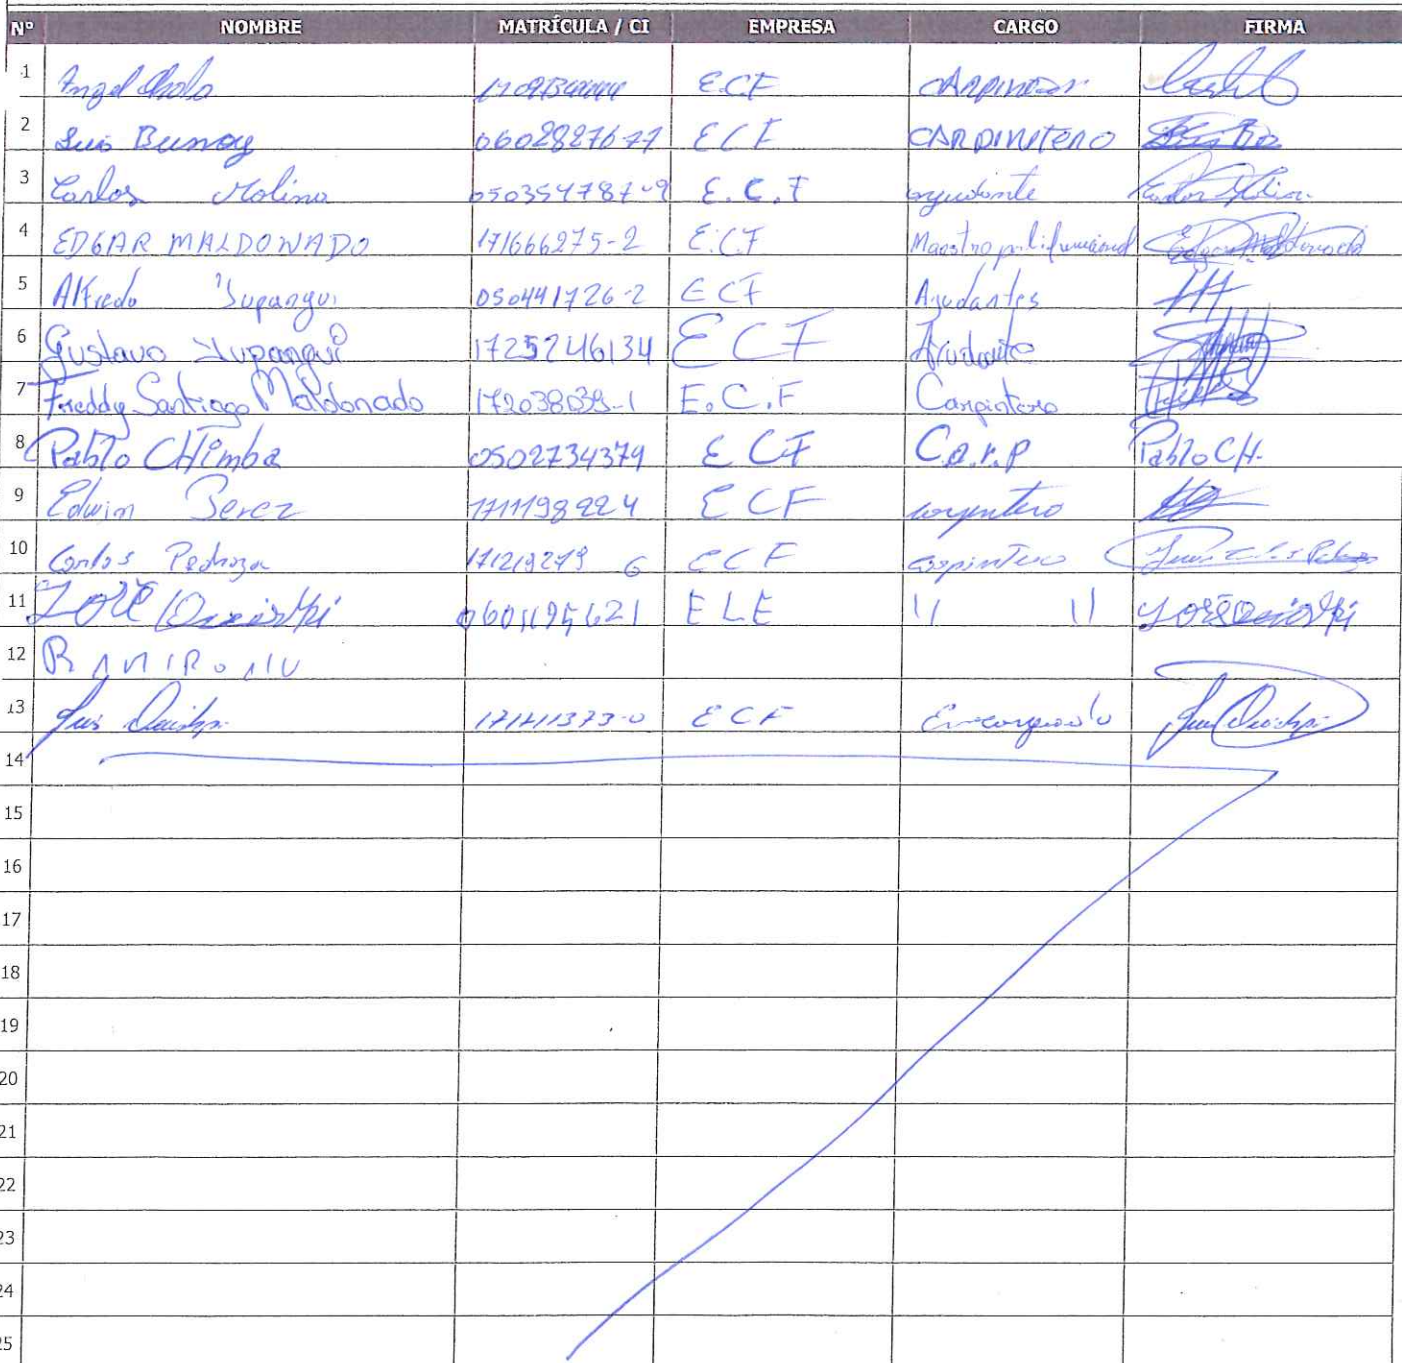 Nº NOMBRE MATRÍCULA / CI EMPRESA CARGO FIRMA
1 Angel Cholo E.C.F
2 Luis Bunay 0602827677 E C F CARPINTERO
3 Carlos Molina 050354787-9 E.C.F ayudante
4 EDGAR MALDONADO 171666275-2 E.C.F Maestro polifuncional
5 Alfredo Yupangui 050441726-2 E C F Ayudantes
6 Gustavo Yupangui 1725246134 E C F Ayudante
7 Freddy Santiago Maldonado 172038039-1 E.C.F Carpintero
8 Pablo CHimba 0502734379 E C F Carp Pablo CH.
9 Edwin Perez 1711198224 E C F
10 Carlos Pedroza 171219279 6 E C F carpintero
11 José 0601195621 E L E 11 11
12
13 Luis Quishpi 171411373-0 E C F Encargado Luis Quishpi
14
15
16
17
18
19
20
21
22
23
24
25